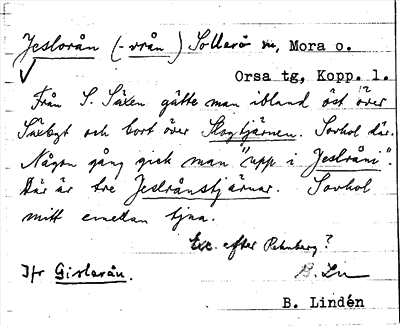 Jeslorån (-vrån) Sollerö sn, Mora o.
Orsa tg, Kopp. l.
Från S. Säxen gätte man ibland öst över
Säxbyt och bort över Skogtjärnen. Sovhol där.
Någon gång gick man "upp i Jeslråni".
Där är tre Jeslrånstjärnar. Sovhol
mitt emellan tjna.
Exc. efter Rehnberg?
Jfr Gislarån.
B. Ln
B. Lindén